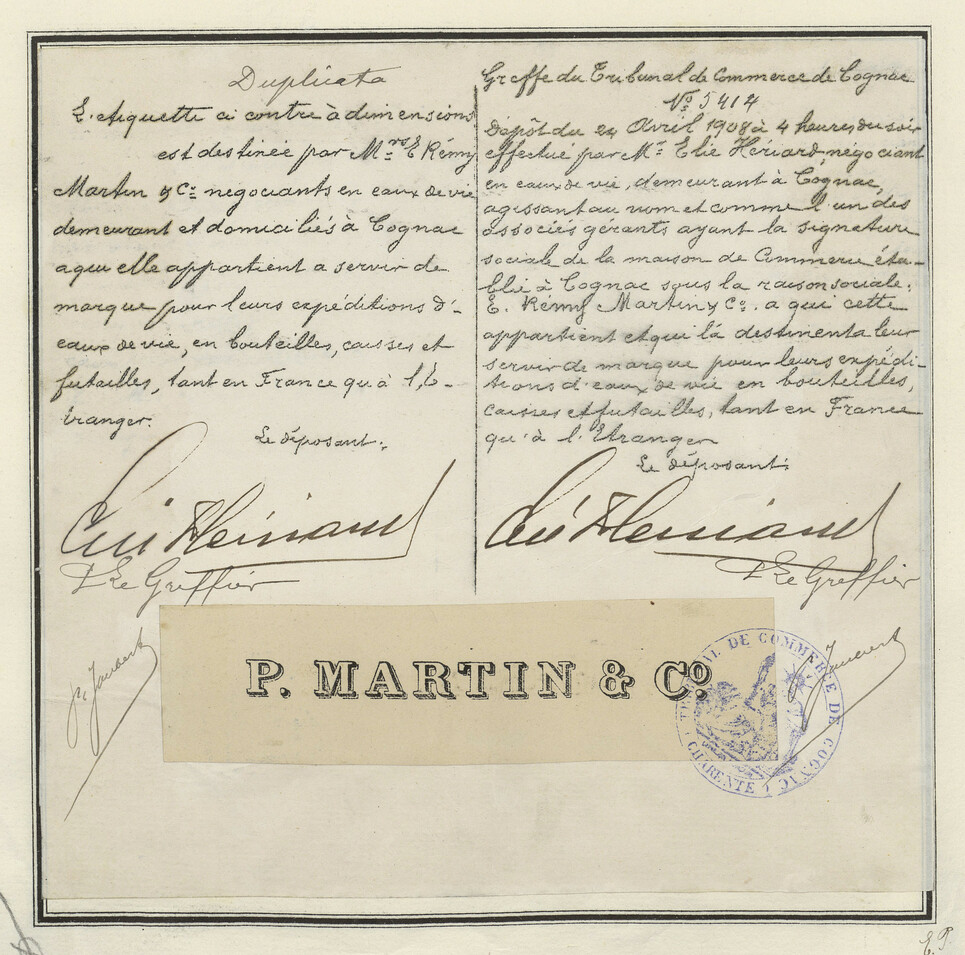 Duplicata
L'etiquette ci contre à dimensions
est destinée par Mrs E Rémy
Martin & Co negociants en eaux de vie
demeurant et domiciliés à Cognac
a qui elle appartient a servir de
marque pour leurs expéditions d'-
eaux de vie, en bouteilles, caisses et
futailles, tant en France qu'à l'E-
tranger.
Le déposant:
Le Greffier
Greffe du Tribunal de Commerce de Cognac
No 5414
Dépôt du 24 Avril 1908 à 4 heures du soir
effectué par Mr Elie Hériard, négociant
en eaux de vie, demeurant à Cognac,
agissant au nom et comme l'un des
associés gérants ayant la signature
sociale de la maison de Commerce éta-
blie à Cognac sous la raison sociale:
E. Rémy Martin & Co. a qui cette
appartient et qui la destinent a leur
servir de marque pour leurs expédi-
tions d'eaux de vie en bouteilles,
caisses et futailles, tant en France
qu'à l'Etranger
Le déposant:
Elie Hériard
Le Greffier
P. MARTIN & Co.
TRIBUNAL DE COMMERCE DE COGNAC
CHARENTE
E. P.